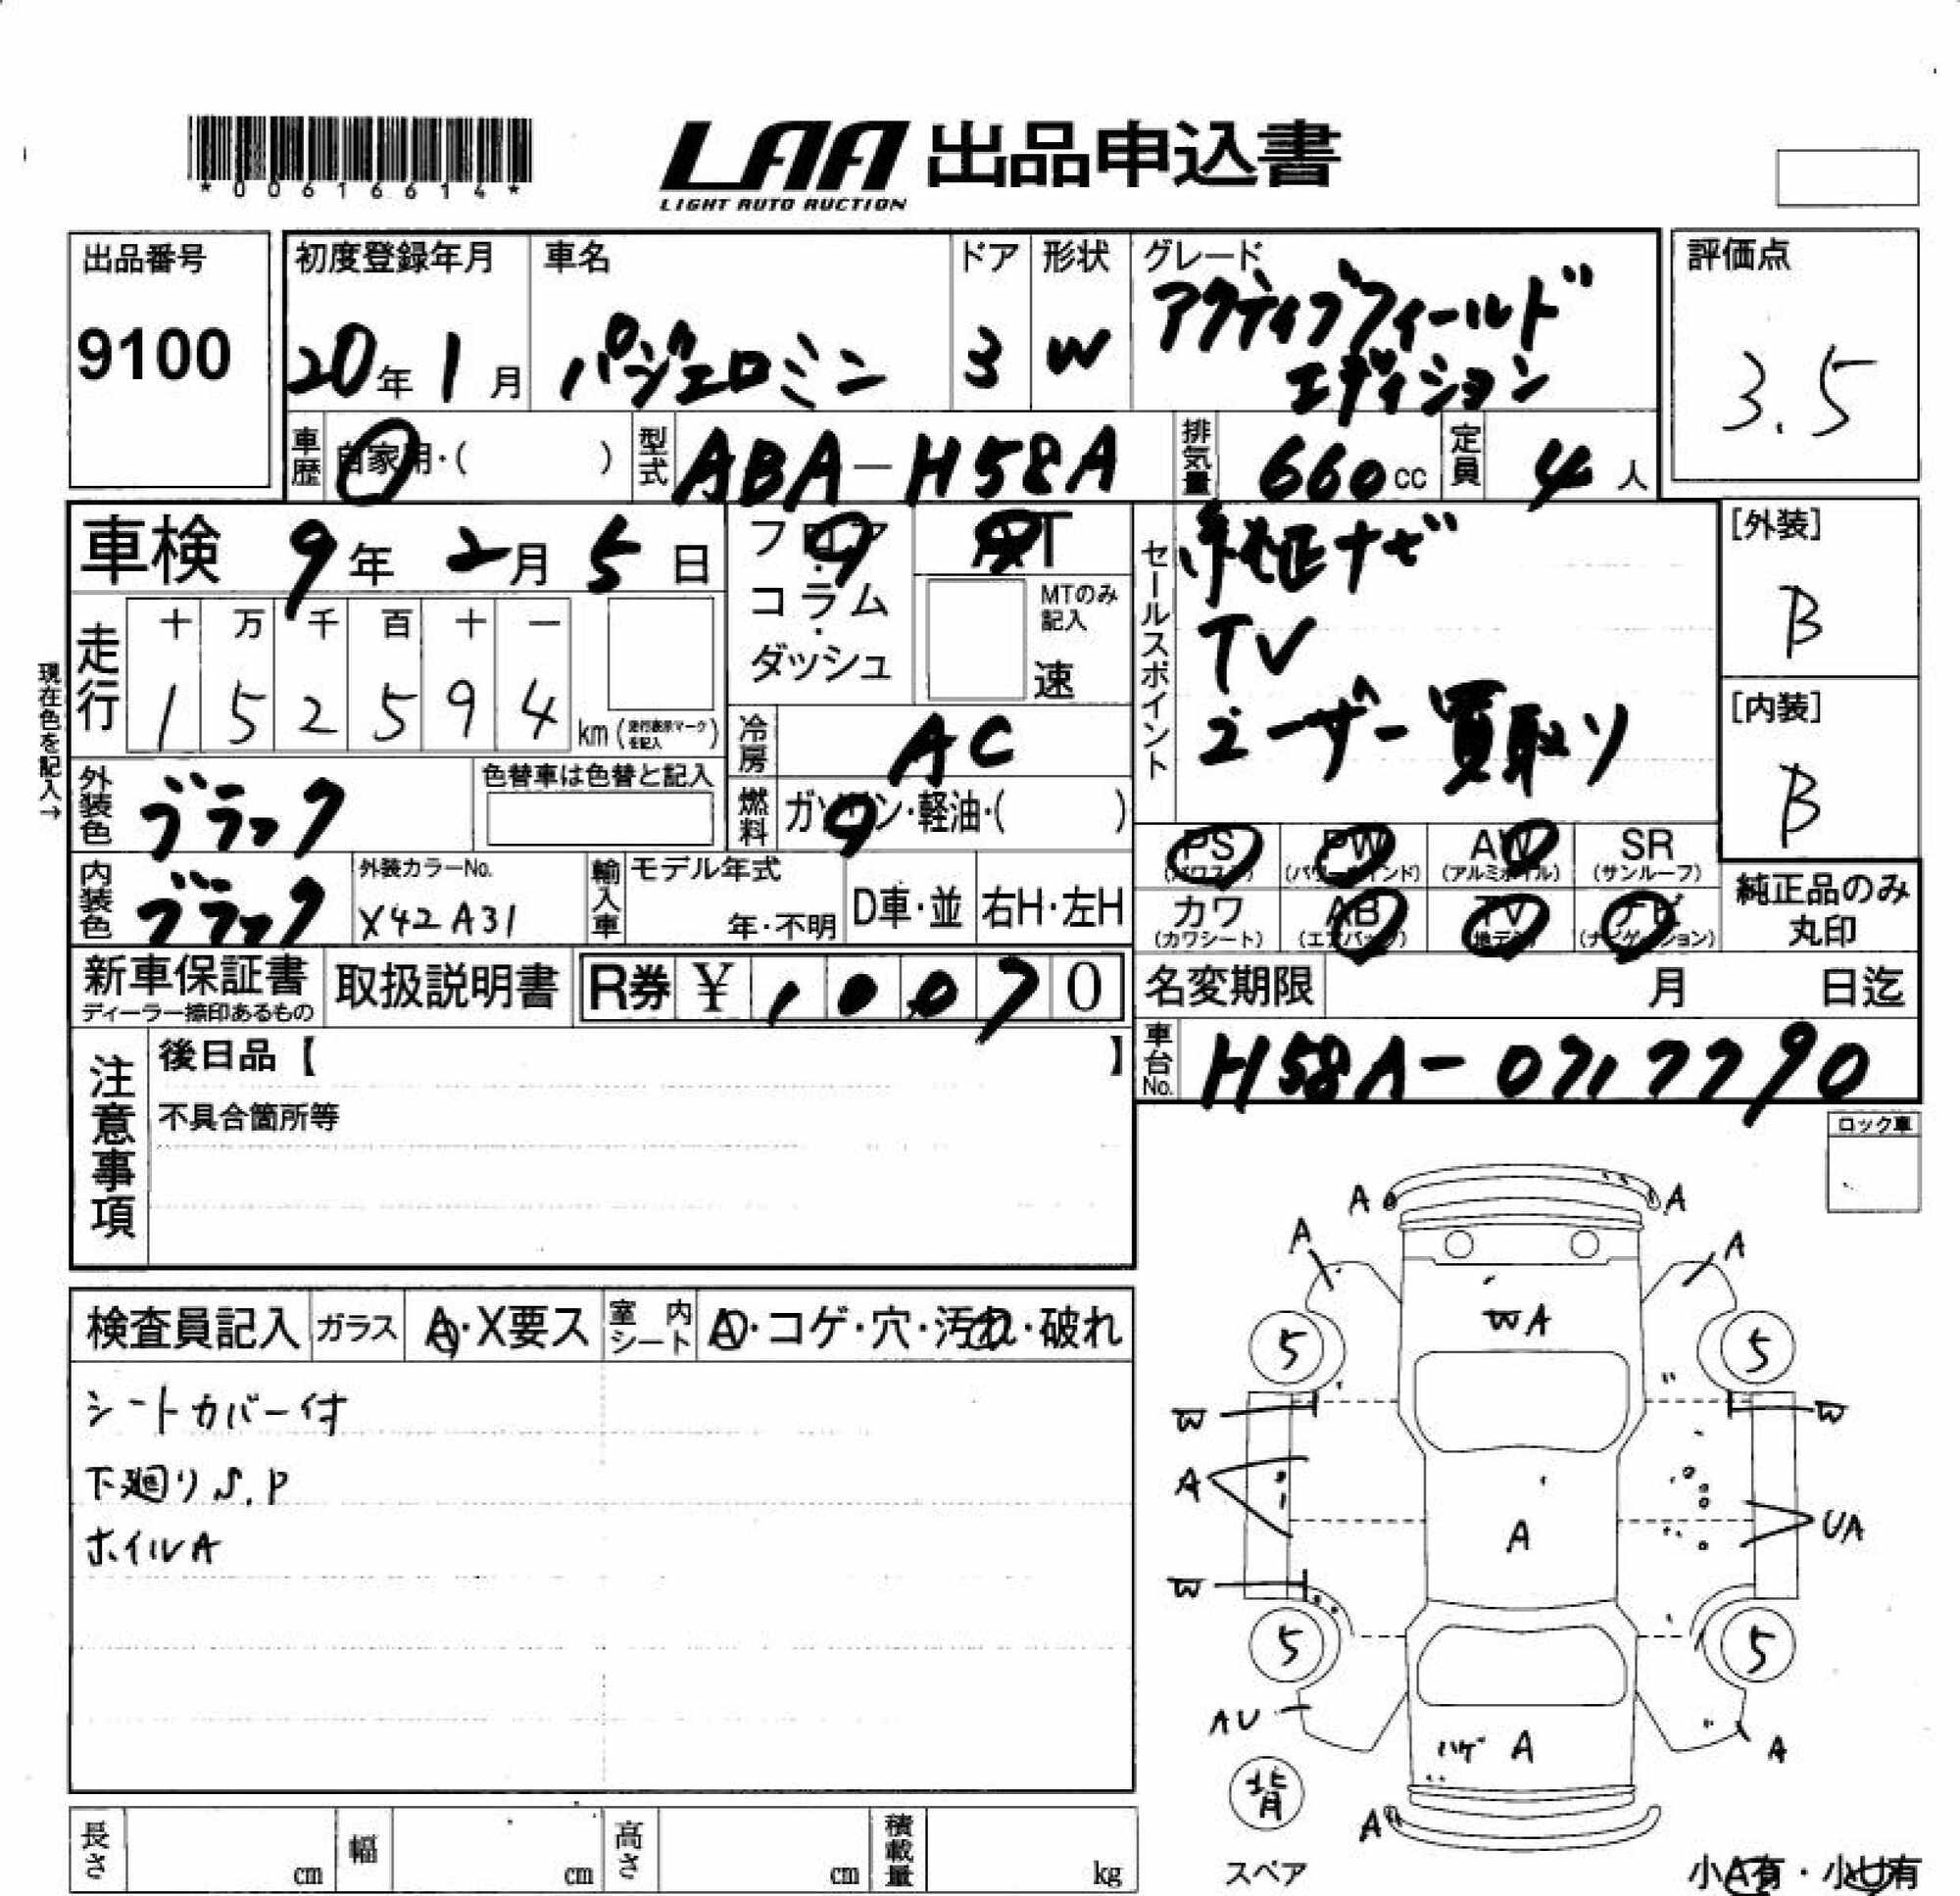 *00616614*
LAA 出品申込書
LIGHT AUTO AUCTION
出品番号
9100
初度登録年月
20年1月
車名
パジェロミニ
ドア
3
形状
W
グレード
アクティブフィールド
エディション
評価点
3.5
車歴
自家用・( )
型式
ABA-H58A
排気量
660cc
定員
4人
車検 9年2月5日
フロア
・
コラム
・
ダッシュ
AT
MTのみ
記入
速
セールスポイント
純正ナビ
TV
ユーザー買取り
[外装]
B
[内装]
B
現在色を記入→
走行
十 万 千 百 十 一
1 5 2 5 9 4
km(走行表示マークを記入)
冷房
AC
外装色
ブラック
色替車は色替と記入
燃料
ガソリン・軽油・( )
内装色
ブラック
外装カラーNo.
X42 A31
輸入車
モデル年式
年・不明
D車・並
右H・左H
PS
(パワステ)
PW
(パワーウインド)
AW
(アルミホイル)
SR
(サンルーフ)
カワ
(カワシート)
AB
(エアバッグ)
TV
(地デジ)
ナビ
(ナビゲーション)
純正品のみ
丸印
新車保証書
ディーラー捺印あるもの
取扱説明書
R券 ¥ 10070
名変期限 月 日迄
車台No.
H58A-0717790
注意事項
後日品【 】
不具合箇所等
ロック車
検査員記入
ガラス
A・X要ス
室内シート
A・コゲ・穴・汚れ・破れ
シートカバー付
下廻りS.P
ホイルA
A A
A A
WA
5 5
W W
A
A
UA
W
5 5
AU
ハゲ A
A
背
A
スペア
長さ cm
幅 cm
高さ cm
積載量 kg
小A有・小U有